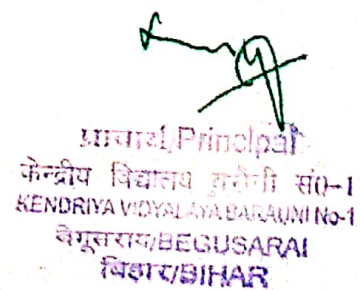 प्राचार्य/Principal
केन्द्रीय विद्यालय बरौनी सं0-1
KENDRIYA VIDYALAYA BARAUNI No-1
बेगूसराय/BEGUSARAI
बिहार/BIHAR